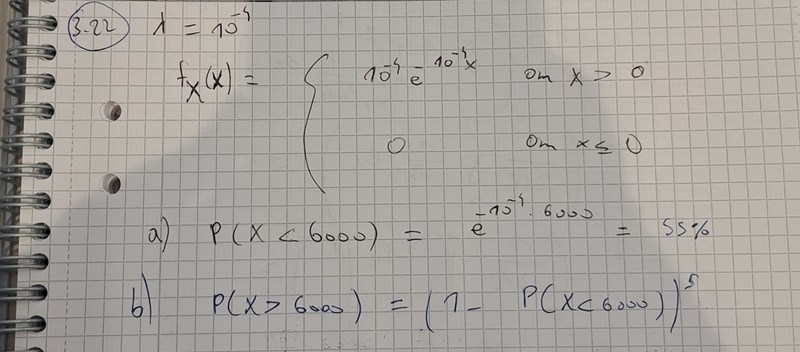 3.22 λ = 10⁻⁴
f_X(x) = { 10⁻⁴ e^{-10⁻⁴x} om x > 0
0 om x ≤ 0
a) P(X < 6000) = e^{-10⁻⁴ · 6000} = 55%
b) P(X > 6000) = (1 - P(X < 6000))⁵